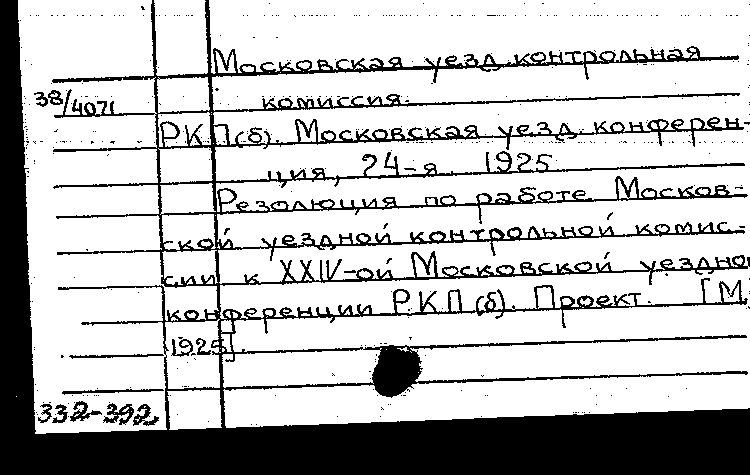 Московская уезд. контрольная
38/4071 комиссия.
РКП(б). Московская уезд. конферен-
ция, 24-я. 1925
Резолюция по работе Москов-
ской уездной контрольной комис-
сии к XXIV-ой Московской уездно
конференции РКП(б). Проект. [М.
1925].
332-392